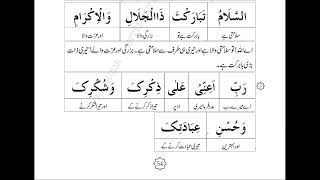 السَّلَامُ تَبَارَكْتَ ذَاالْجَلَالِ وَالْاِكْرَامِ
سلامتی ہے بابرکت ہے تو بزرگی والا اور عزت والا
اے اللہ! تو سلامتی والا ہے اور تیری ہی طرف سے سلامتی ہے۔ بزرگی اور عزت والے! تیری ذات
بڑی بابرکت ہے۔
رَبِّ اَعِنِّیْ عَلٰی ذِكْرِكَ وَشُكْرِكَ
اے میرے رب مدد فرما میری اوپر تیرا ذکر کرنے کے اور تیرا شکر کرنے
وَحُسْنِ عِبَادَتِكَ
اور بہترین تیری عبادت کرنے کے
54